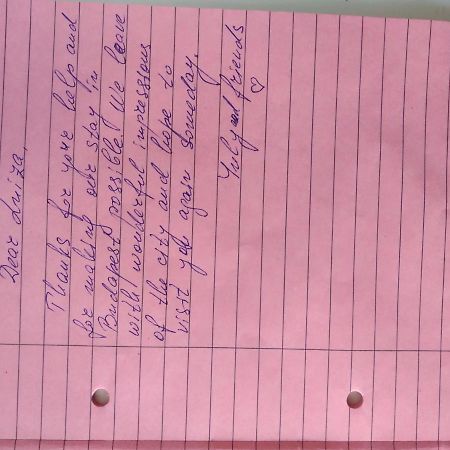 Dear Luiza,
Thanks for your help and
for making our stay in
Budapest possible! We leave
with wonderful impressions
of the city and hope to
visit you again someday.
Yuly and friends
♡